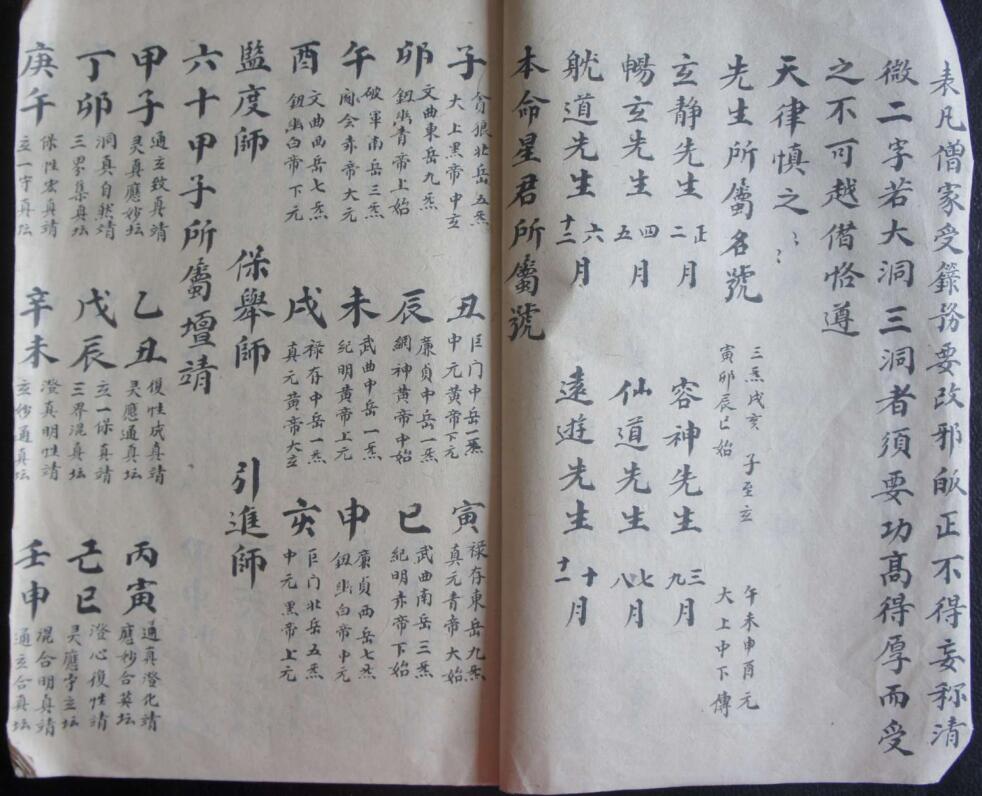 表凡僧家受籙務要改邪皈正不得妄称清
微二字若大洞三洞者須要功髙得厚而受
之不可越借恪遵
天律慎之ミミ
先生所屬名號 三炁戌亥 子至玄 午未申酉元
寅卯辰巳始 大上中下傳
玄静先生 正二月 容神先生 三九月
暢玄先生 四五月 仙道先生 七八月
躭道先生 六十二月 遠遊先生 十十一月
本命星君所屬號
子 貪狼北岳五炁 大上黑帝中玄 丑 巨门中岳一炁 中元黄帝下元 寅 禄存東岳九炁 真元青帝大始
卯 文曲東岳九炁 紐幽青帝上始 辰 廉貞中岳一炁 綱神黄帝中始 巳 武曲南岳三炁 紀明赤帝下始
午 破軍南岳三炁 赤帝大元 未 武曲中岳一炁 紀明黄帝上元 申 廉貞西岳七炁 紐幽白帝中元
酉 文曲西岳七炁 紐幽白帝下元 戌 禄存中岳一炁 真元黄帝大玄 亥 巨门北岳五炁 中元黑帝上元
監度師 保舉師 引進師
六十甲子所屬壇靖
甲子 通玄致真靖 灵真應妙坛 乙丑 復性成真靖 灵應通真坛 丙寅 通真澄化靖 應妙合英坛
丁卯 洞真自然靖 三界集真坛 戊辰 玄一保真靖 三界混真坛 己巳 澄心復性靖 灵應守玄坛
庚午 保性宏真靖 玄一守真坛 辛未 澄真明性靖 玄妙通真坛 壬申 混合明真靖 通玄合真坛